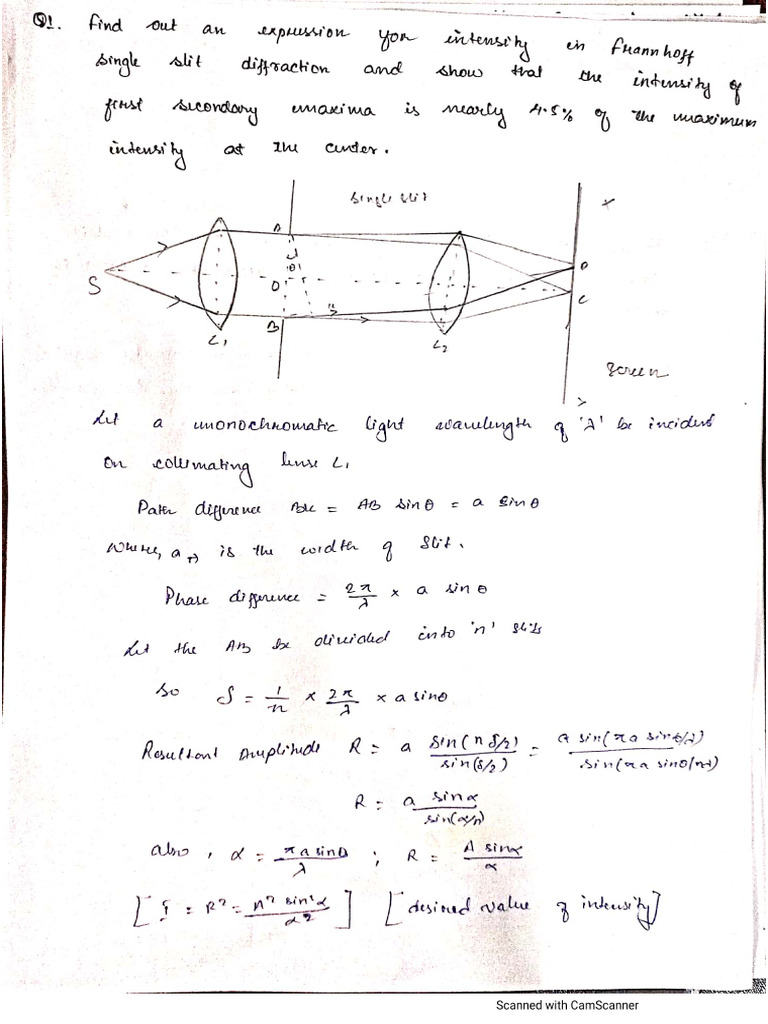 Q1. Find out an expression for intensity in Fraunhoff
single slit diffraction and show that the intensity of
first secondary maxima is nearly 4.5% of the maximum
intensity at the center.
Single slit
A
θ
S
O
B
K
L1
L2
P
C
Screen
Let a monochromatic light wavelength of 'λ' be incident
on collimating lense L1
Path difference BK = AB sinθ = a sinθ
where, a → is the width of slit.
Phase difference = 2π/λ × a sinθ
Let the AB be divided into 'n' slits
So δ = 1/n × 2π/λ × a sinθ
Resultant Amplitude R = a sin(nδ/2)/sin(δ/2) = a sin(πa sinθ/λ)/sin(πa sinθ/nλ)
R = a sinα/sin(α/n)
also, α = πa sinθ/λ ; R = A sinα/α
[I = R² = A² sin²α/α²] [desired value of intensity]
Scanned with CamScanner